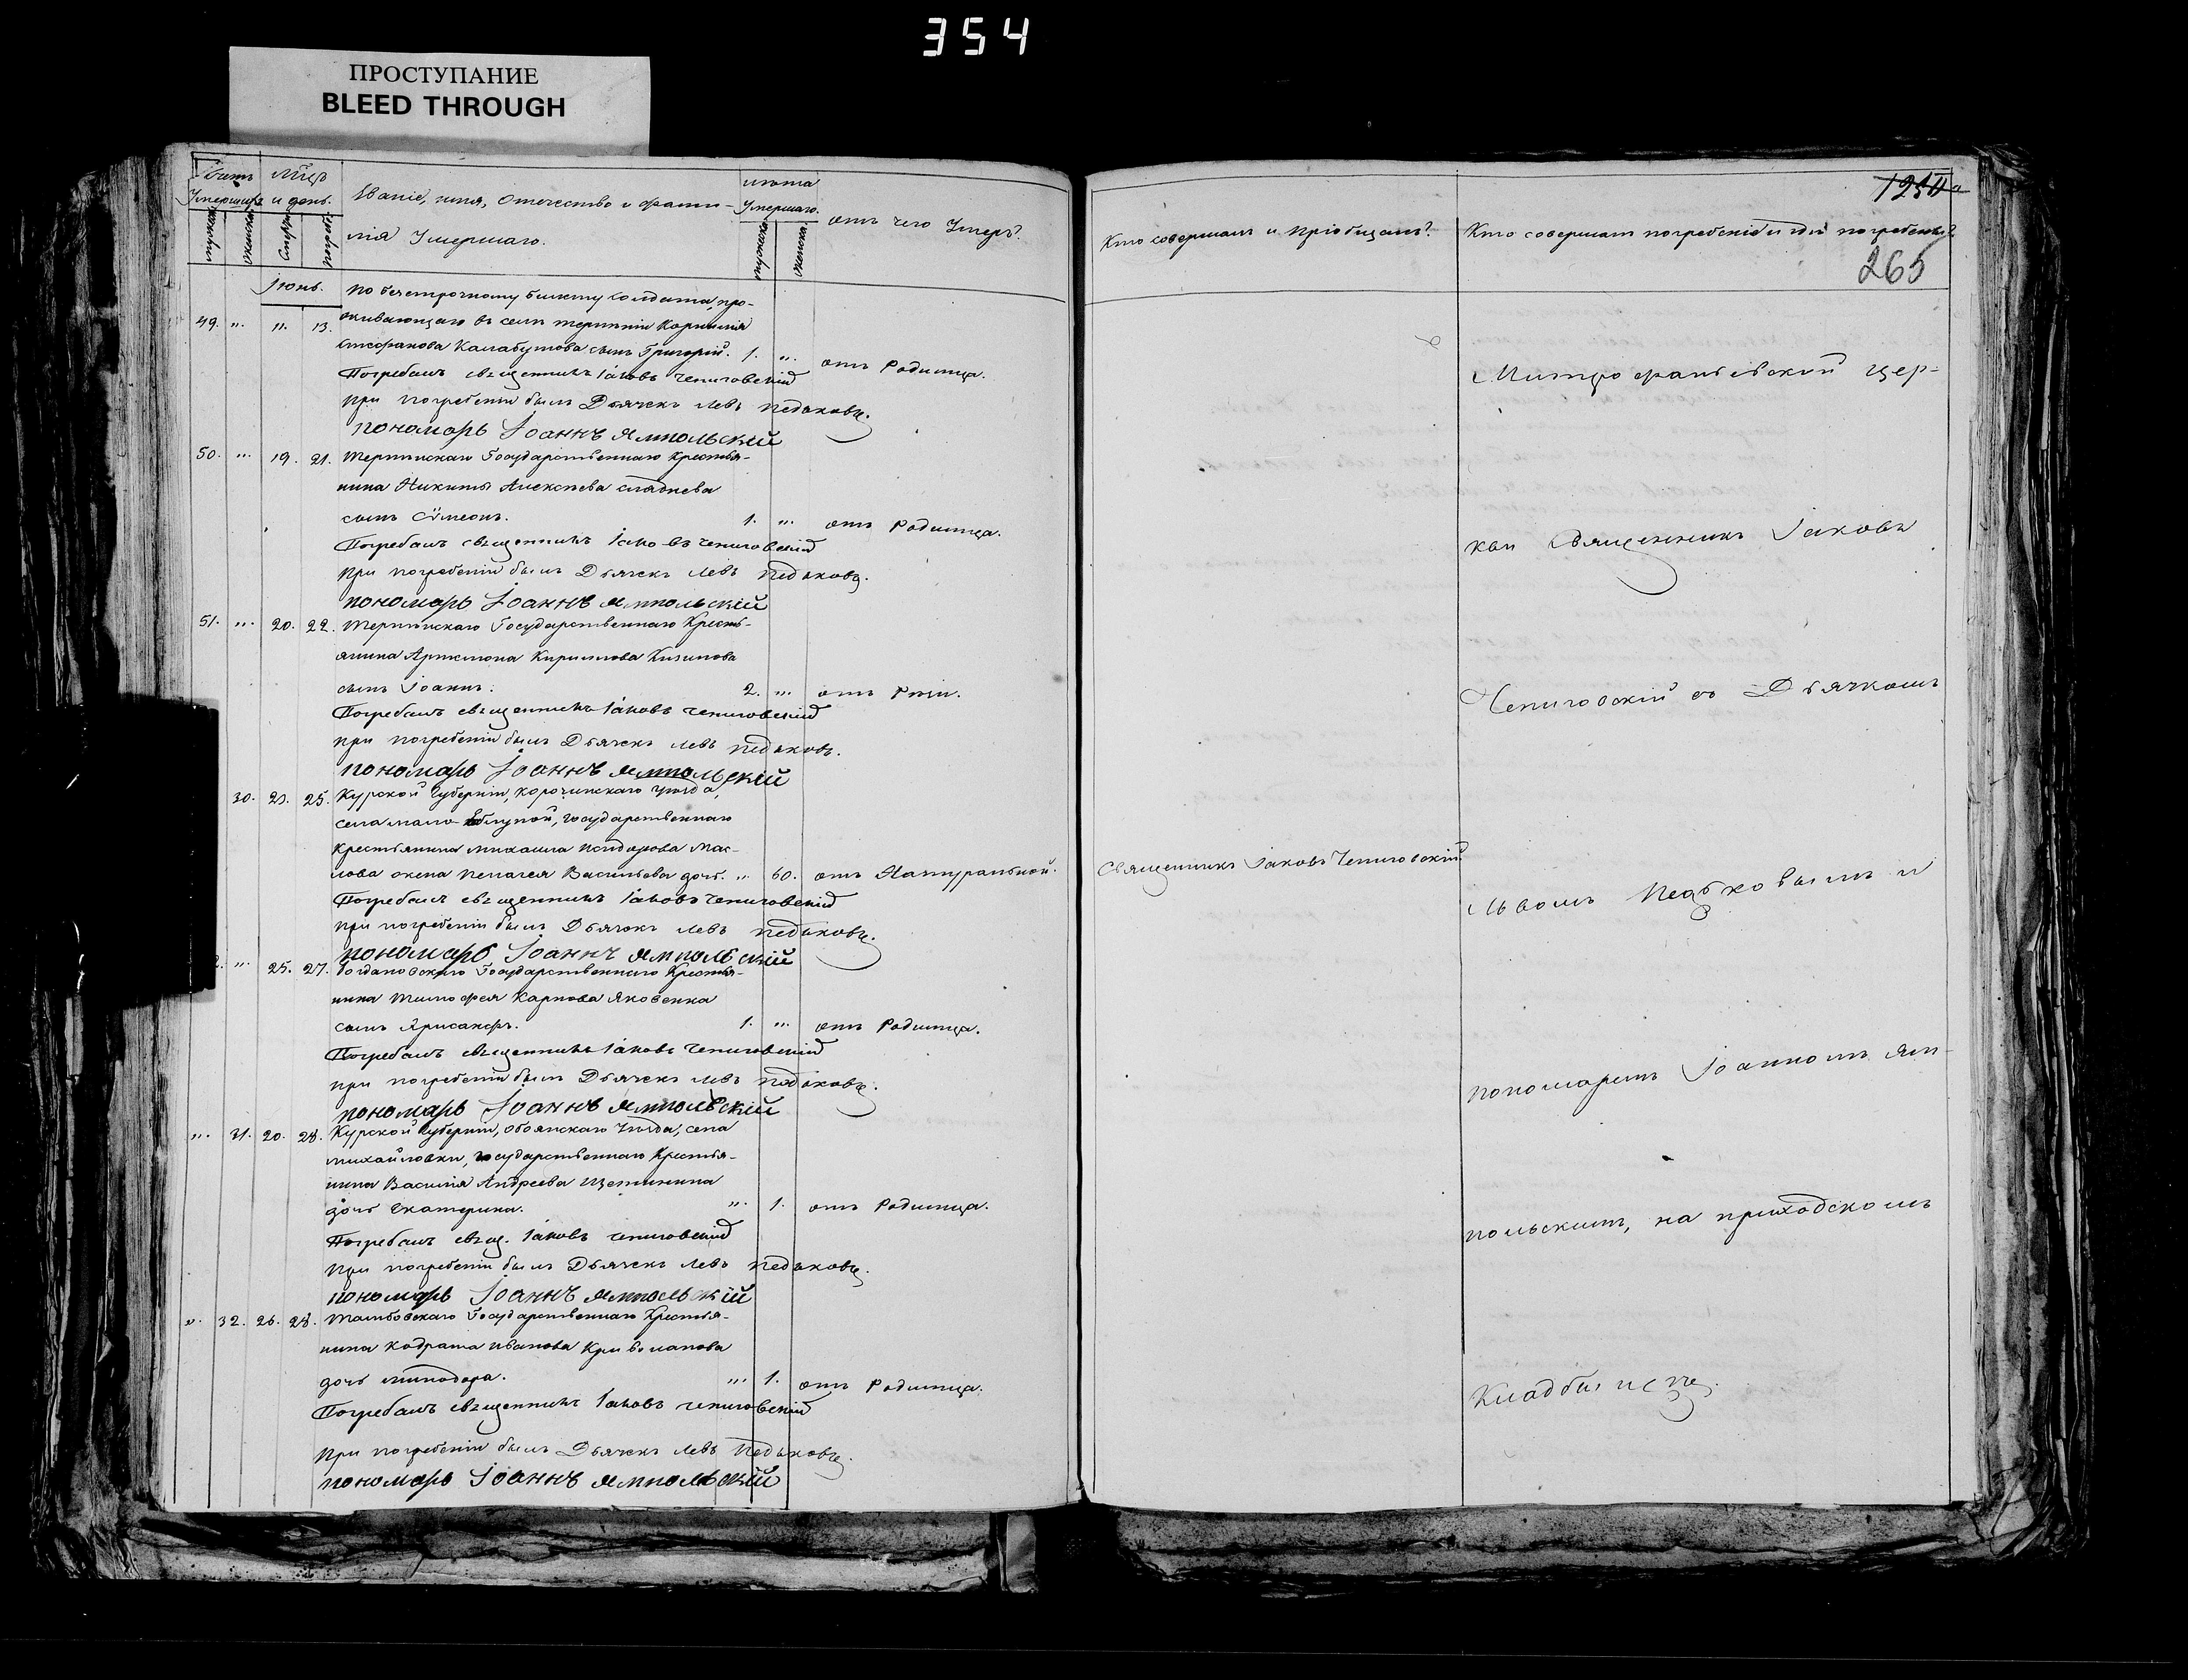 354
ПРОСТУПАНИЕ
BLEED THROUGH
Умершихъ
Мѣсяцъ и день.
Званіе, имя, Отечество и фами-
лія Умершаго.
Лѣта Умершаго.
отъ чего Умеръ?
Іюнь.
По безсрочному билету солдата, про-
49. ". 11. 13. живающаго въ селѣ Терпѣніи Корнилія
Стефанова Калабухова сынъ Григорій. 1. ". отъ Родимца.
Погребалъ священникъ Іаковъ Чепиговскій
При погребеніи былъ Дьячекъ Левъ Педьковъ.
пономарь Іоаннъ Ямпольскій
50. ". 19. 21. Терпѣнскаго Государственнаго Крестья-
нина Никиты Алексѣева Сладнева
сынъ Сѵмеонъ. 1. ". отъ Родимца.
Погребалъ священникъ Іаковъ Чепиговскій
При погребеніи былъ Дьячекъ Левъ Педьковъ.
пономарь Іоаннъ Ямпольскій
51. ". 20. 22. Терпѣнскаго Государственнаго Кресть-
янина Артемона Кирилова
сынъ Іоаннъ. 2. ". отъ
Погребалъ священникъ Іаковъ Чепиговскій
при погребеніи былъ Дьячекъ Левъ Педьковъ.
пономарь Іоаннъ Ямпольскій
30. 23. 25. Курской Губерніи, Корочинскаго уѣзда,
села Мало-Яблуной, государственнаго
Крестьянина Михаила Исидорова Мас-
лова жена Пелагея Васильева дочь. ". 60. отъ Натуральной.
Погребалъ священникъ Іаковъ Чепиговскій
При погребеніи былъ Дьячокъ Левъ Педьковъ.
пономарь Іоаннъ Ямпольскій
2. ". 25. 27. Богдановскаго Государственнаго Крестья-
нина Тимофея Карпова Яковенка
сынъ Хрисанфъ. 1. ". отъ Родимца.
Погребалъ священникъ Іаковъ Чепиговскій
при погребеніи былъ Дьячекъ Левъ Педьковъ.
пономарь Іоаннъ Ямпольскій
". 31. 20. 28. Курской Губерніи, Обоянскаго Уѣзда, села
Михайловки, государственнаго Крестья-
нина Василія Андреева Щетинина
дочь Екатерина. ". 1. отъ Родимца.
Погребалъ свящ. Іаковъ Чепиговскій
При погребеніи былъ Дьячекъ Левъ Педьковъ.
пономарь Іоаннъ Ямпольскій
". 32. 26. 28. Тамбовскаго Государственнаго Крестья-
нина Кодрата Иванова Кривопапова
дочь Минодора. ". 1. отъ Родимца.
Погребалъ священникъ Іаковъ Чепиговскій
При погребеніи былъ Дьячекъ Левъ Педьковъ.
пономарь Іоаннъ Ямпольскій
Кто совершалъ и пріобщалъ?
Кто совершалъ погребеніе и гдѣ погребены?
265
Священникъ Іаковъ Чепиговскій
Митрофаньевской Цер-
кви Священникъ Іаковъ
Чепиговскій съ Дьячкомъ
Львомъ Педьковымъ и
пономаремъ Іоанномъ Ям-
польскимъ, на приходскомъ
Кладбищѣ.